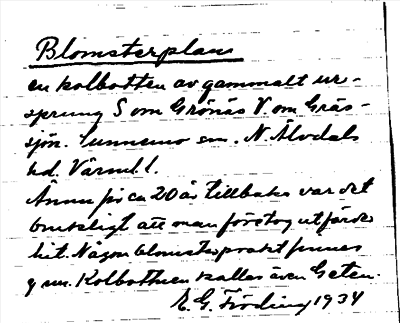 Blomsterplan
en kolbotten av gammalt ur-
sprung S om Grönäs V om Gräs-
sjön. Sunnemo sn. N. Älvdals
hd. Värml.
Ännu för ca 20 år tillbaka var det
brukligt att man företog utfärder
hit. Någon blomsterprakt finnes
ej nu. Kolbottnen kallas även Geten.
E. G. Fröding 1934